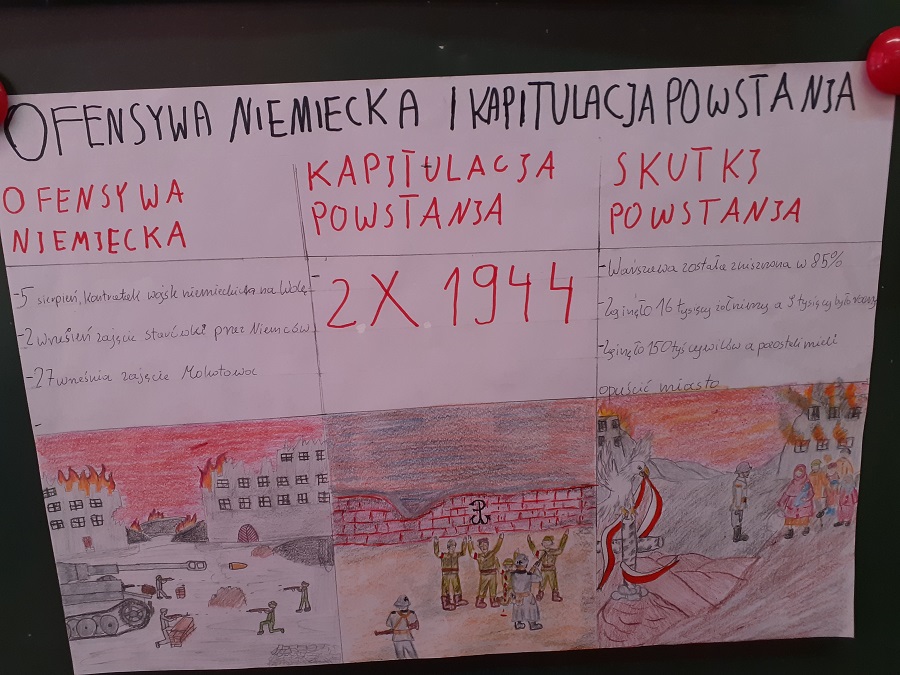 OFENSYWA NIEMIECKA I KAPITULACJA POWSTANIA
OFENSYWA
NIEMIECKA
- 5 sierpień, kontratak wojsk niemieckich na Wolę
- 2 wrzesień zajęcie starówki przez Niemców
- 27 września zajęcie Mokotowa
-
KAPITULACJA
POWSTANIA
-
2 X 1944
SKUTKI
POWSTANIA
- Warszawa została zniszczona w 85%
- Zginęło 16 tysięcy żołnierzy a tysięcy było
- Zginęło 150 tyś cywilów a pozostali mieli
opuścić miasto